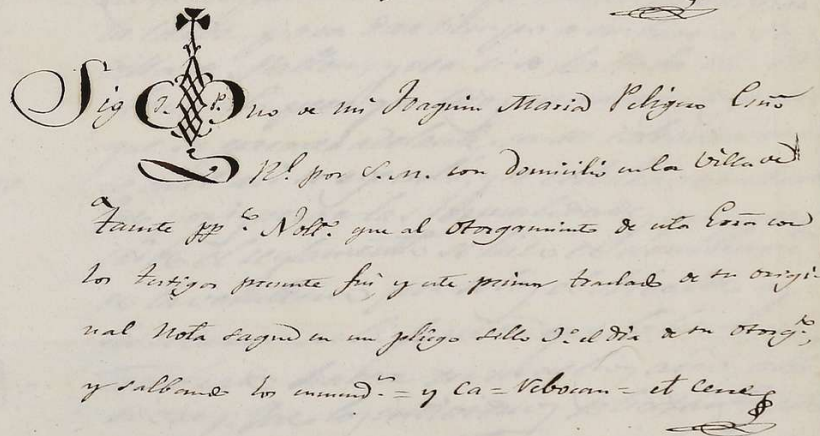 Sig J. P. no de mi Joaquin Maria Peligero Essño
Rl. por S. M. con domicilio en la Villa de
Tauste que al otorgamiento de esta Essra con
los testigos presente fui, y este primer traslado de su origi-
nal Nota saqué en un pliego sello 3º. el dia de su otorgto.,
y salbando los enmendos. = y ca = =